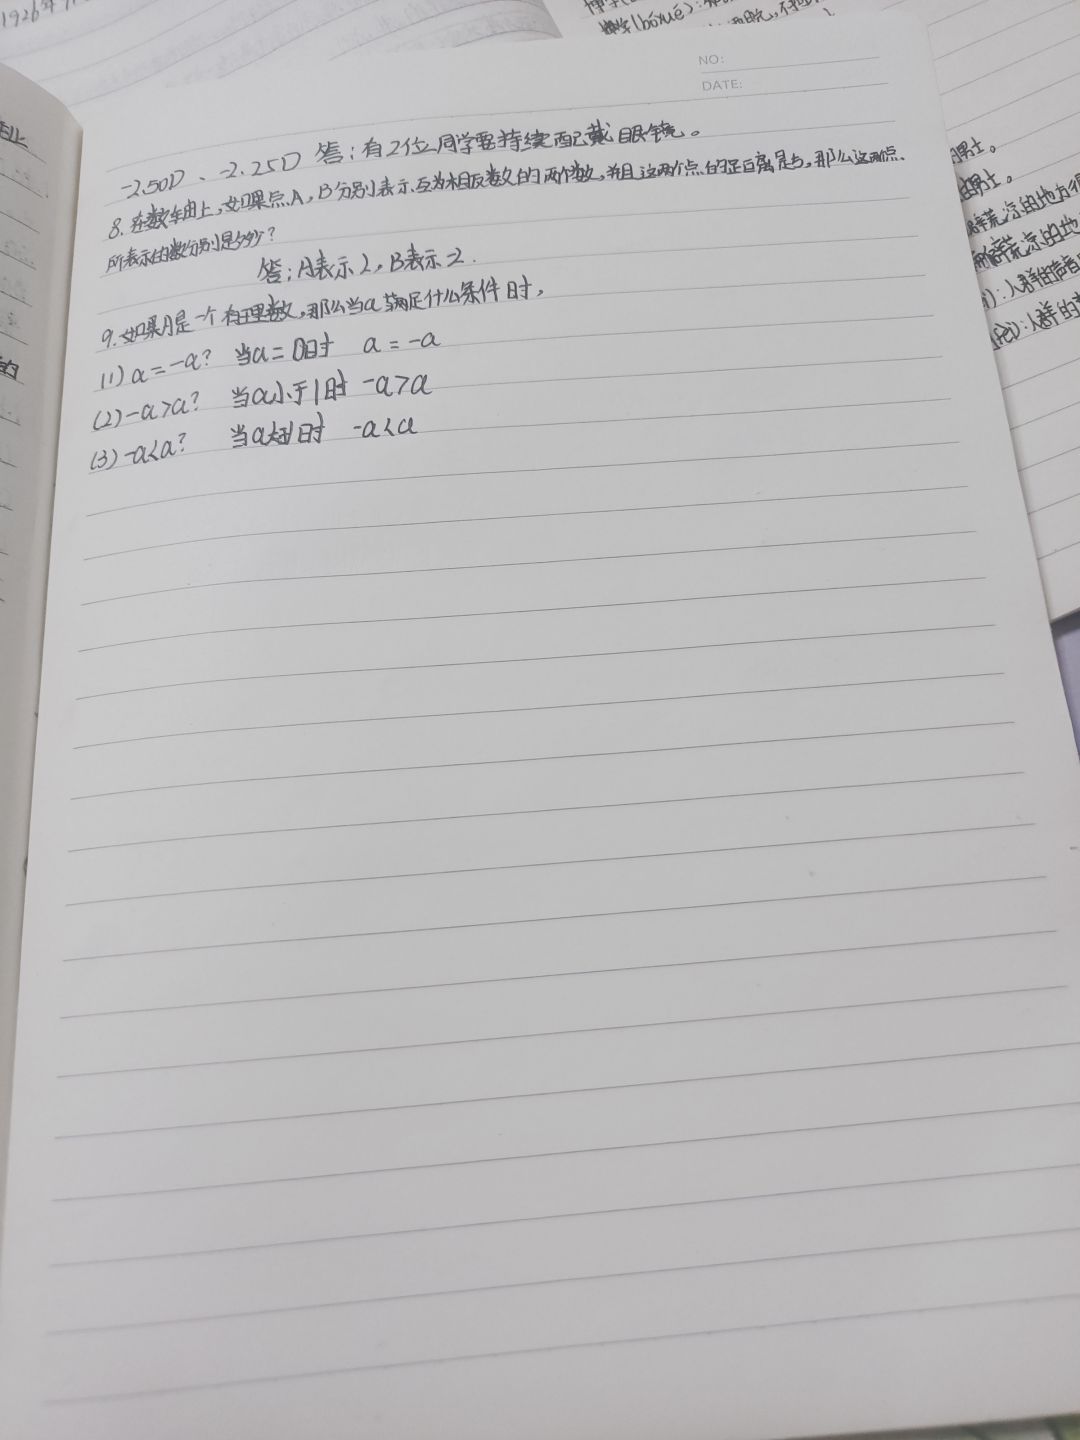 1926年
NO:
DATE:
-2.50D、-2.25D 答:有2位同学要持续配戴眼镜。
8.在数轴上,如果点A,B分别表示互为相反数的两个数,并且这两个点的距离是5,那么这两点
所表示的数分别是多少?
答:A表示2,B表示-2.
9.如果a是一个有理数,那么当a满足什么条件时,
(1)a=-a? 当a=0时 a=-a
(2)-a>a? 当a小于1时 -a>a
(3)-a<a? 当a大于1时 -a<a
(bóxué):
男士。
男士。
荒凉的地方很
荒凉的地
:人群的声音
:人群的